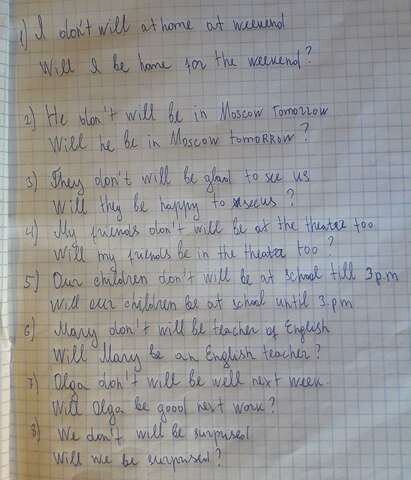 1) I don't will at home at weekend
Will I be home for the weekend?
2) He don't will be in Moscow Tomorrow
Will he be in Moscow tomorrow?
3) They don't will be glad to see us
Will they be happy to see us?
4) My friends don't will be at the theatre too
Will my friends be in the theatre too?
5) Our children don't will be at school till 3 p.m
Will our children be at school until 3.p.m
6) Mary don't will be teacher of English
Will Mary be an English teacher?
7) Olga don't will be well next week.
Will Olga be good next work?
8) We don't will be surprised
Will we be surprised?